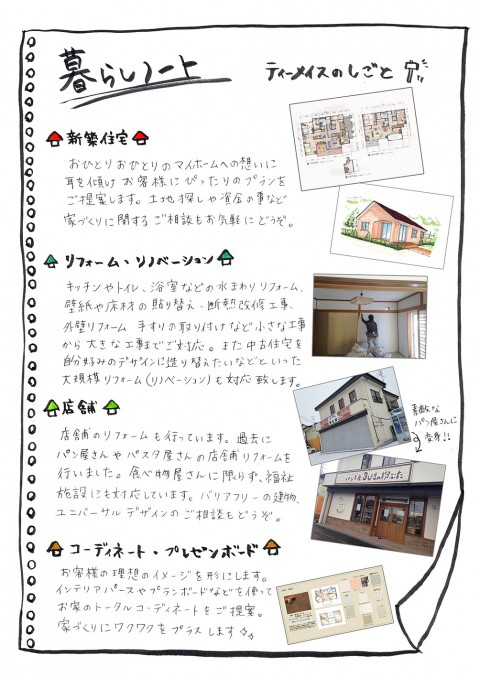 暮らしノート
ティーメイスのしごと
新築住宅
おひとりおひとりのマイホームへの想いに
耳を傾け お客様にぴったりのプランを
ご提案します。土地探しや資金の事など
家づくりに関するご相談もお気軽にどうぞ。
リフォーム・リノベーション
キッチンやトイレ、浴室などの水まわりリフォーム、
壁紙や床材の貼り替え・断熱改修工事、
外壁リフォーム 手すりの取り付けなど小さな工事
から大きな工事までご対応。また中古住宅を
自分好みのデザインに造り替えたいなどといった
大規模リフォーム(リノベーション)も対応致します。
店舗
店舗のリフォームも行っています。過去に
パン屋さんやパスタ屋さんの店舗リフォームを
行いました。食べ物屋さんに限らず、福祉
施設にも対応しています。バリアフリーの建物、
ユニバーサルデザインのご相談もどうぞ。
素敵な
パン屋さんに
変身!!
コーディネート・プレゼンボード
お客様の理想のイメージを形にします。
インテリアパースやプランボードなどを使って
お家のトータルコーディネートをご提案。
家づくりにワクワクをプラスします